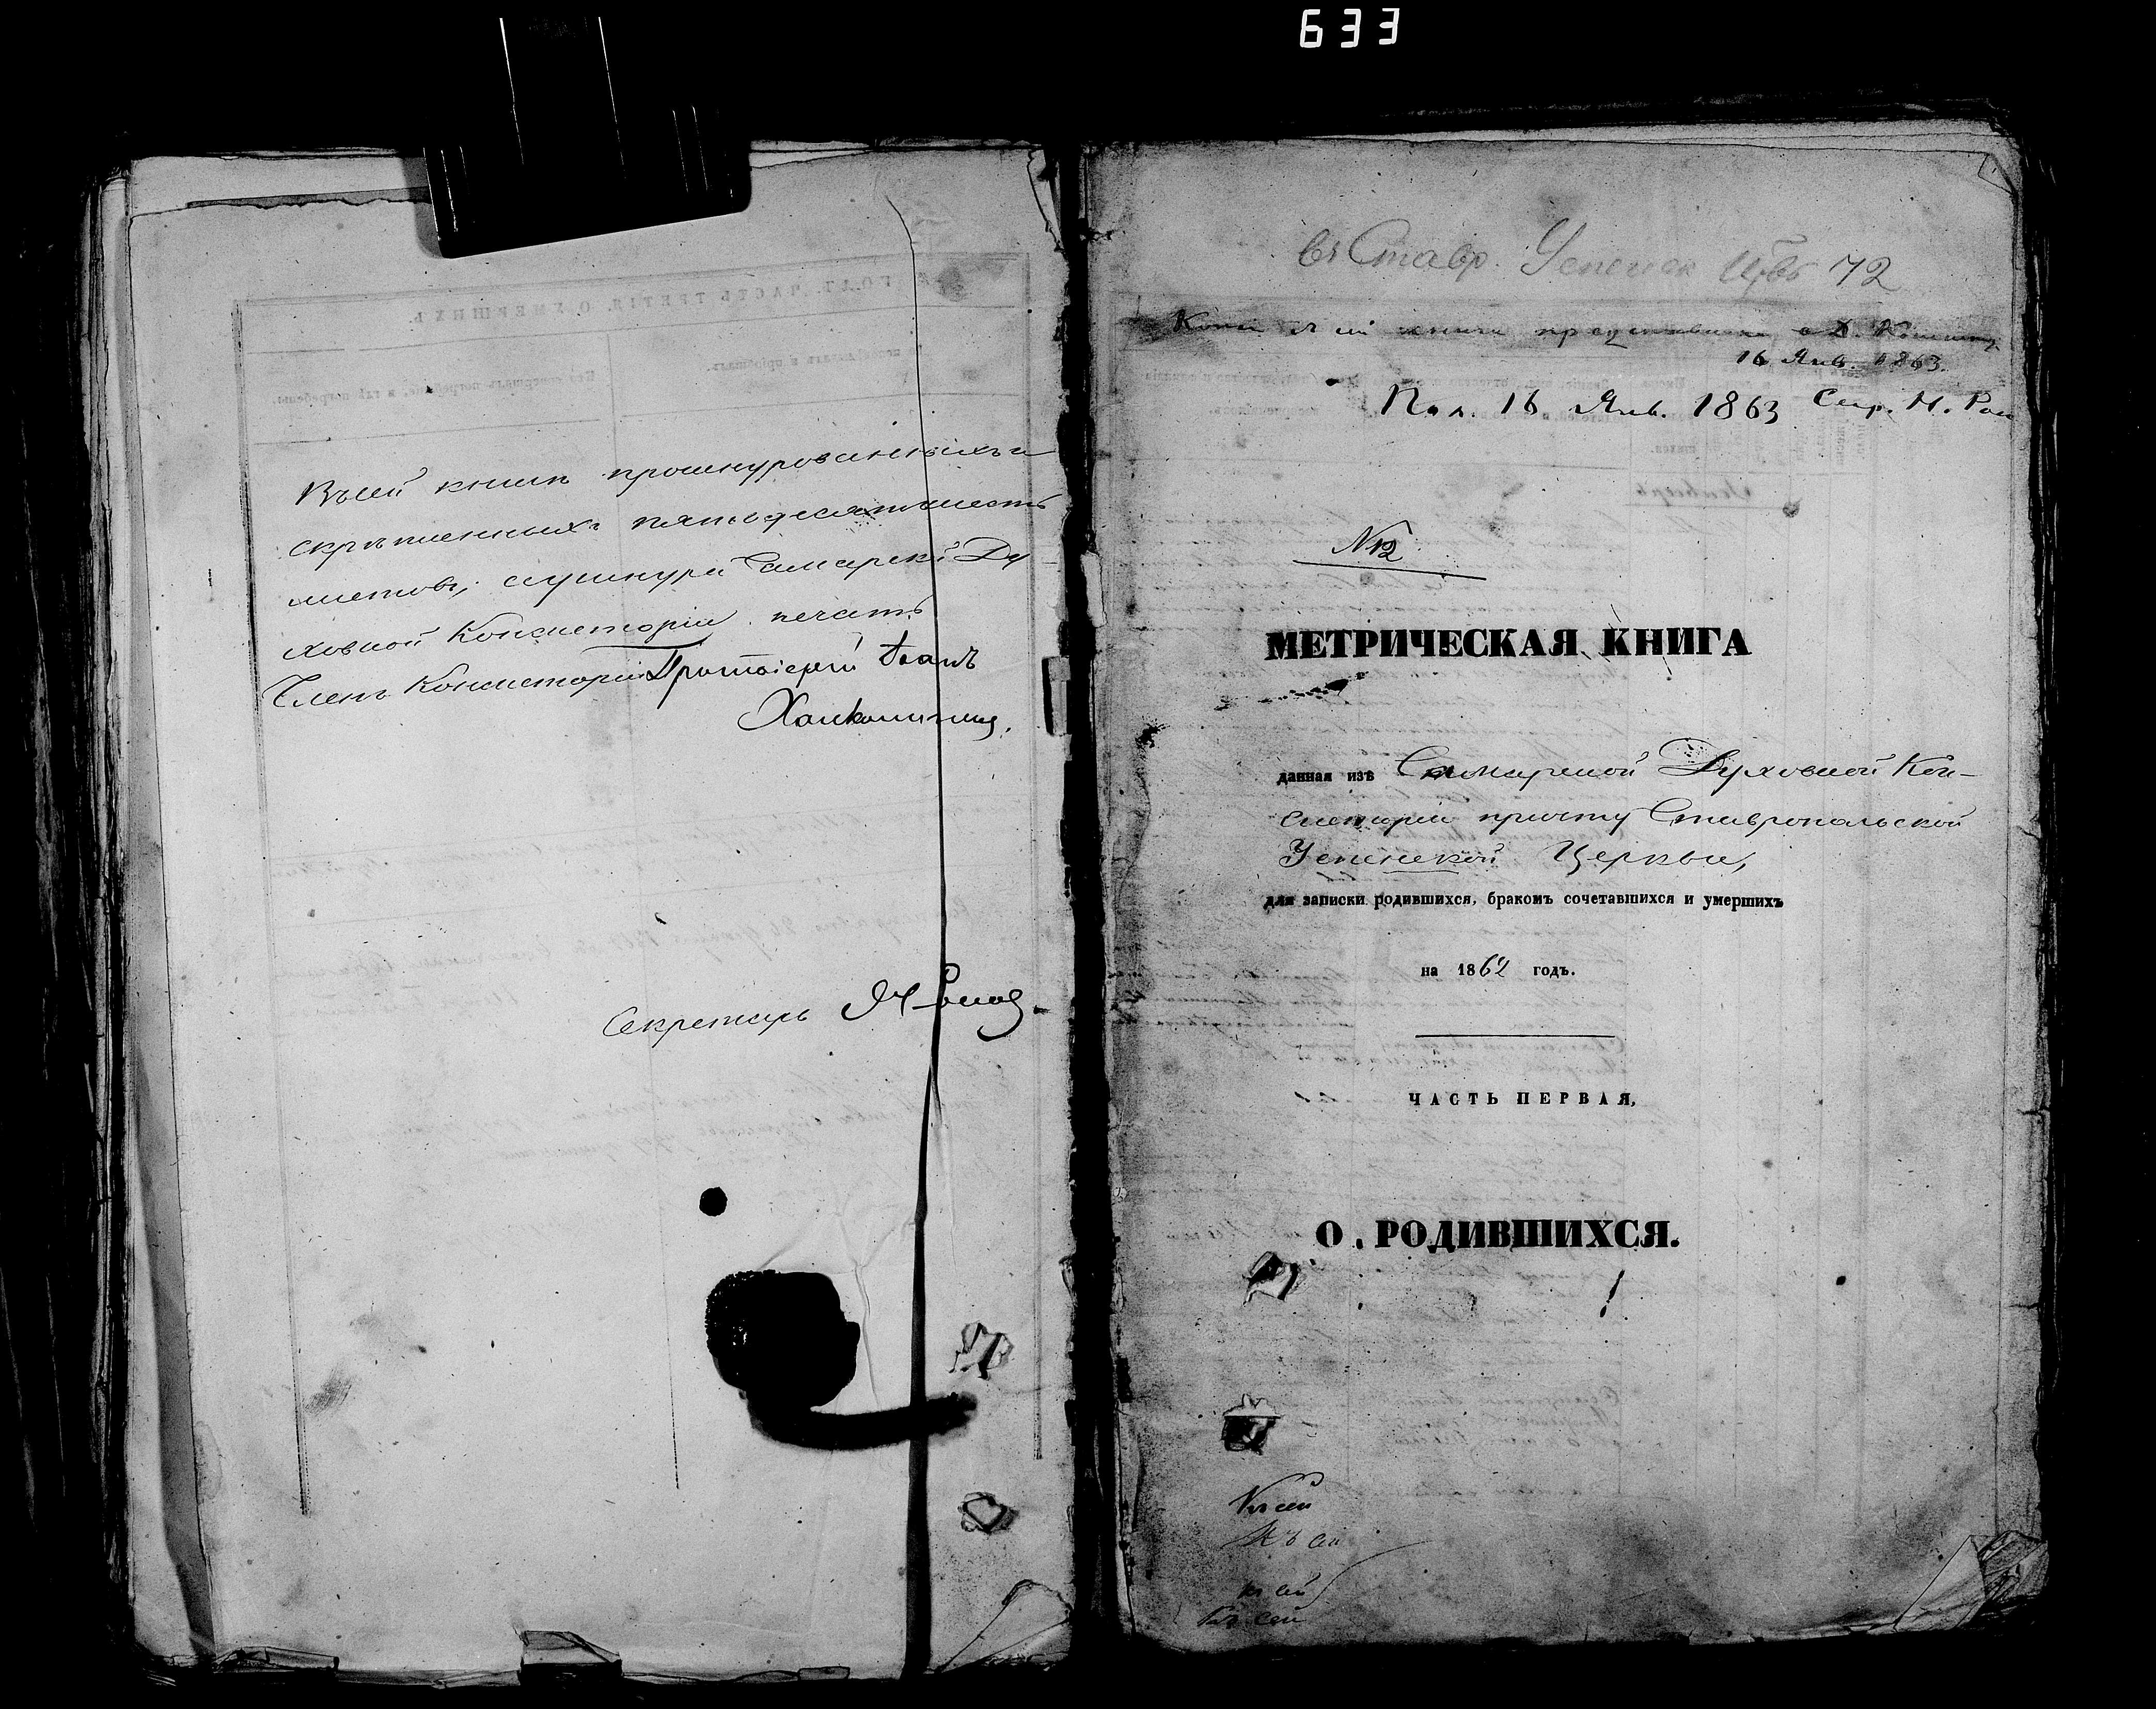 633
Въ сей книгѣ прошнурованныхъ и
скрѣпленныхъ пятьдесятъ шесть
листовъ, а у шнура Самарской Ду
ховной Консисторіи печать
Членъ Консисторіи Протоіерей Іоаннъ
Секретарь
въ Ставр. Успенск Црвь 72
Копія съ сей книги представлена в Д. 
16 Янв. 1863.
Пол. 16 Янв. 1863 Секр. Н.
N12
МЕТРИЧЕСКАЯ КНИГА
данная изъ Самарской Духовной Кон-
систоріи причту Ставропольской
Успенской Церкви,
для записки родившихся, бракомъ сочетавшихся и умершихъ
на 1862 годъ.
ЧАСТЬ ПЕРВАЯ,
О РОДИВШИХСЯ.
Къ сей
Къ сей
къ сей
Къ сей